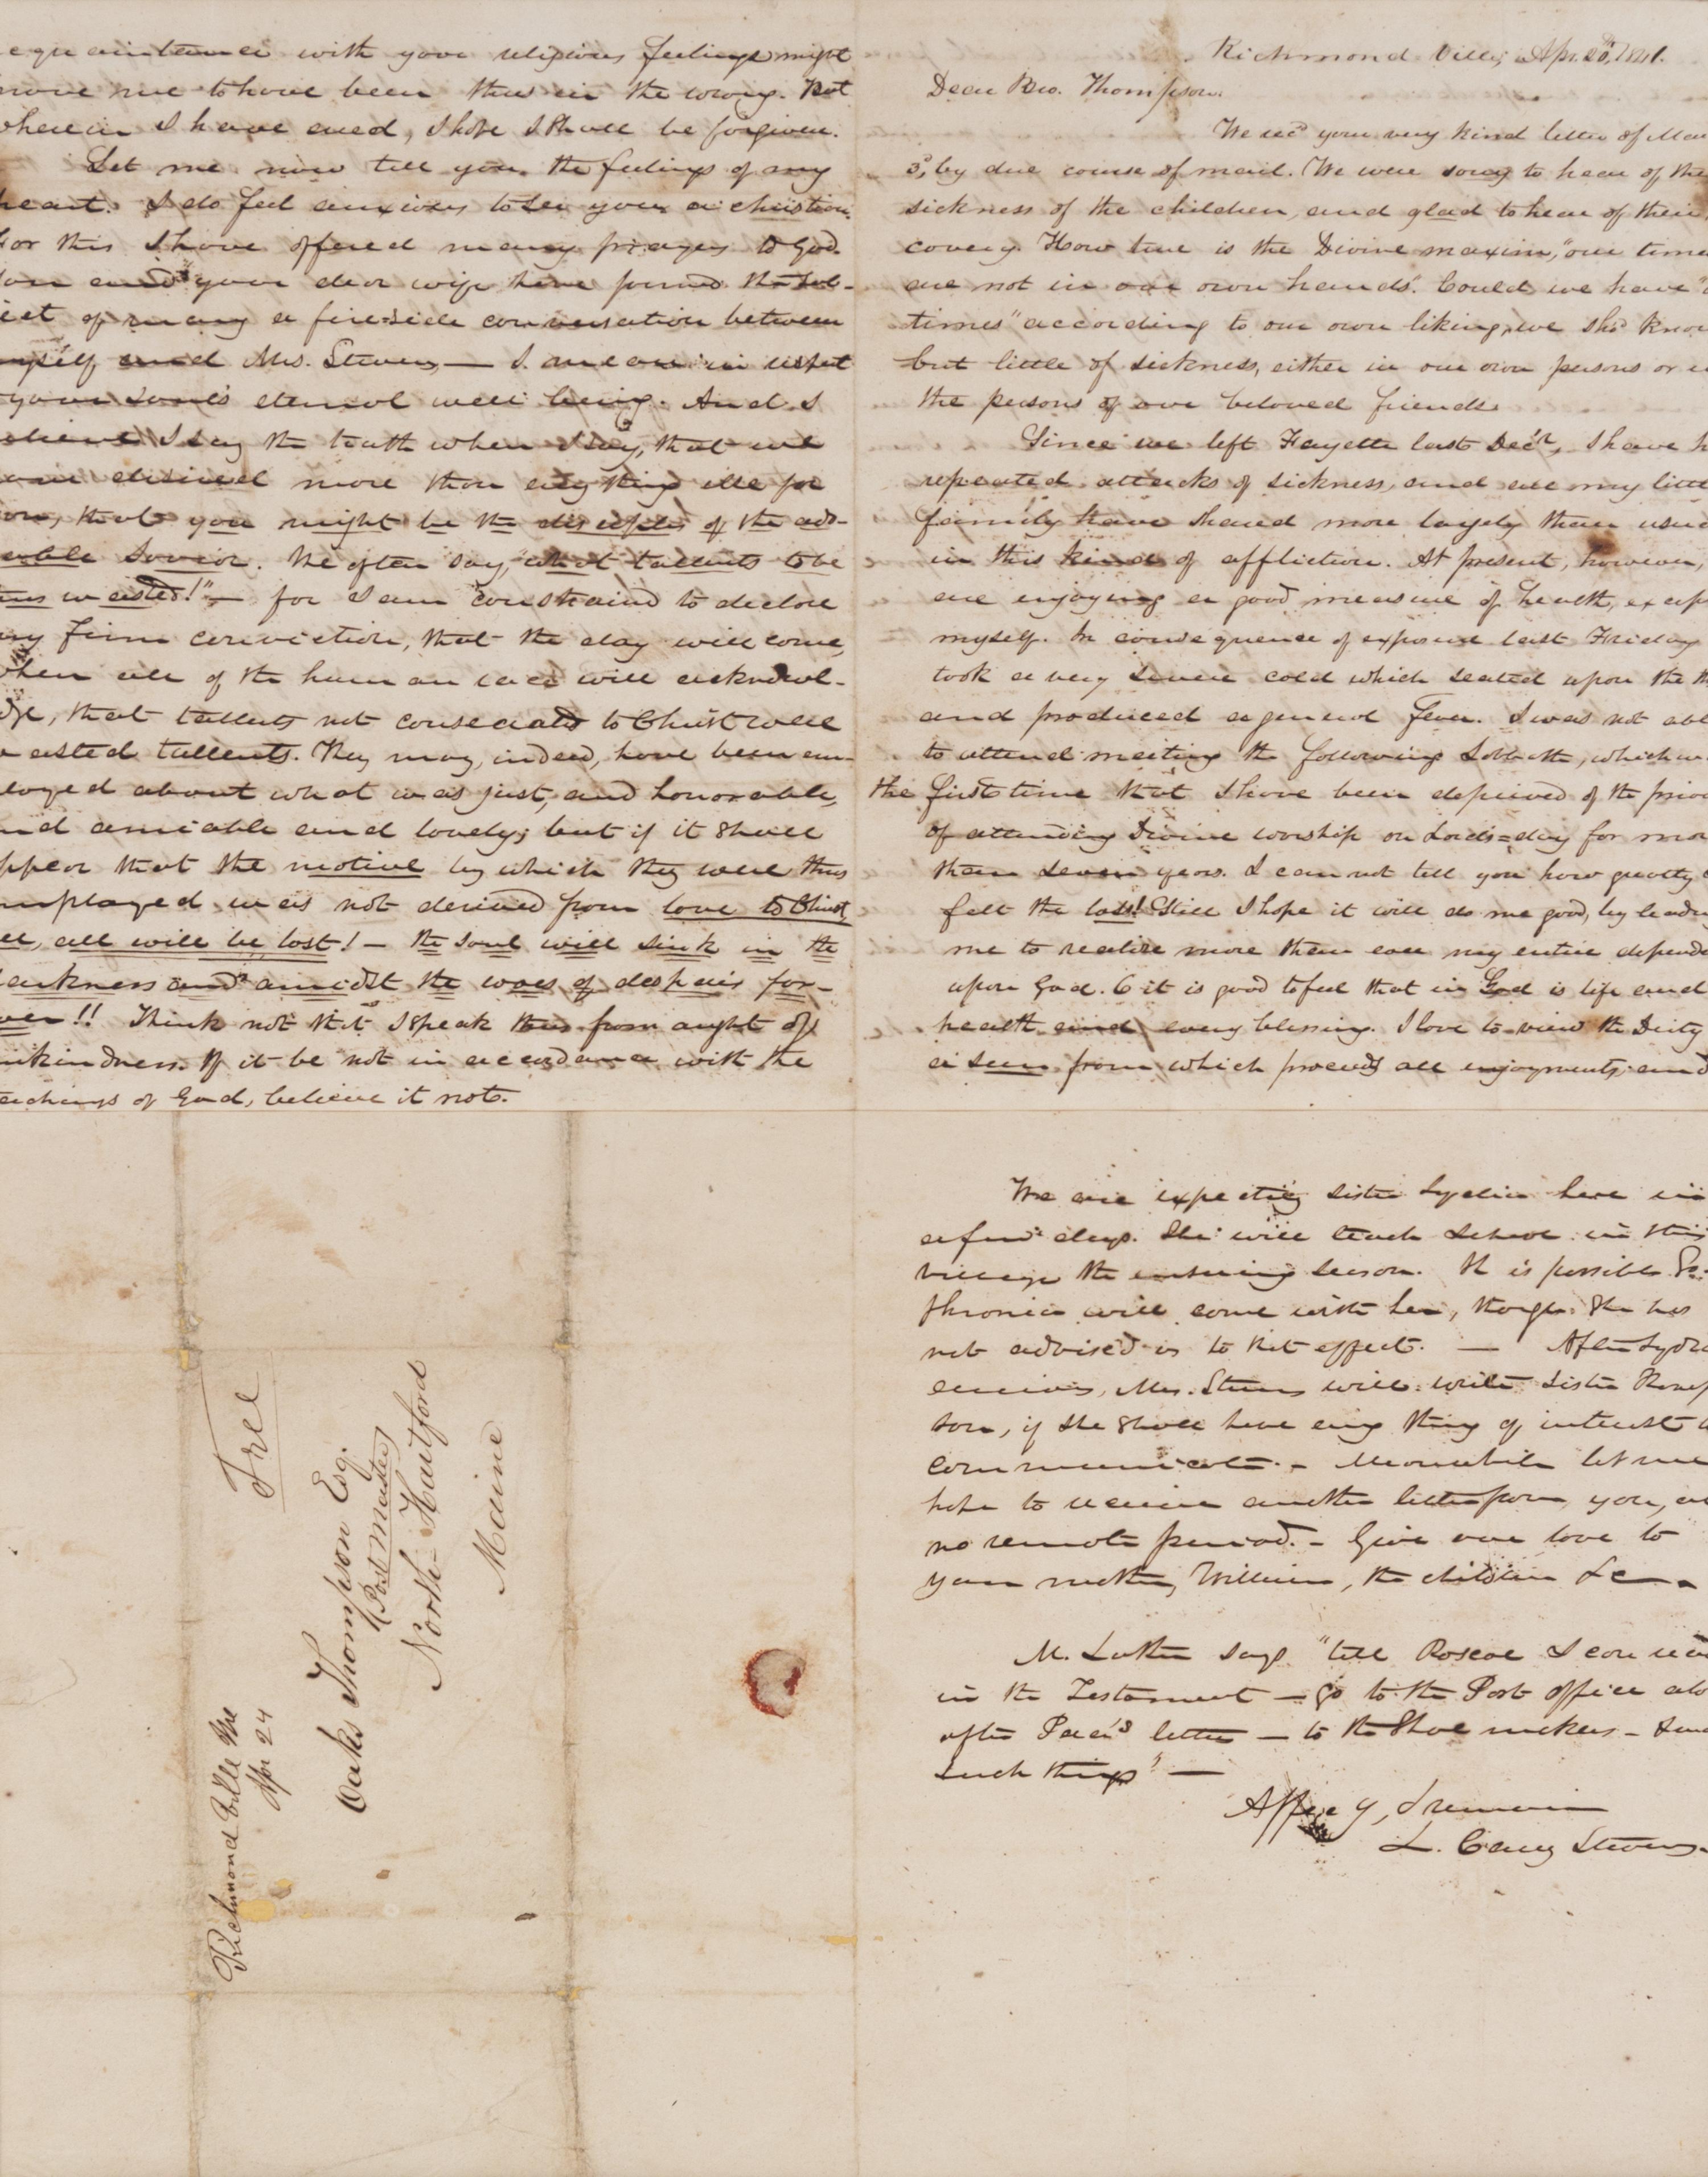 Richmond Ville, Apr. 20, 1841.
Dear Bro. Thompson.
We recd your very kind letter of Mar
3d, by due course of mail. We were sorry to hear of the
sickness of the children, and glad to hear of their
covery. How true is the Divine maxim, "our times
are not in our own hands". Could we have "
times" according to our own liking, we shd know
but little of sickness, either in our own persons or in
the persons of our beloved friends.
Since we left Fayette last Decr, I have h
repeated attacks of sickness, and all my little
family have shared more largely than usu
in this kind of affliction. At present, however,
are enjoying a good measure of health, except
myself. In consequence of exposure last Friday
took a very severe cold which seated upon the
and produced a general fever. I was not abl
to attend meeting the following Sabbath, which w
the first time that I have been deprived of the priv
of attending Divine worship on Lords=day for mor
than seven years. I can not tell you how greatly
felt the loss! Still I hope it will do me good, by leadin
me to realize more than ever my entire depende
upon God. O it is good to feel that in God is life and
health and every blessing. I love to view the Deity
a sun from which proceeds all enjoyments, and
cquaintance with your religious feelings might
prove me to have been thus in the wrong. But
wherein I have erred, I hope I shall be forgiven.
Let me now tell you the feelings of my
heart. I do feel anxious to see you a christian.
For this I have offered many prayers to God.
You and your dear wife have formed the sub-
ject of many a fire-side conversation between
myself and Mrs. Stevens — I mean in respect
your soul's eternal well being. And I
believe I say the truth when I say, that we
have desired more than any thing else for
you, that you might be the disciples of the ado-
rable Savior. We often say, "what tallents to be
thus wasted!" — for I am constraind to declare
my firm conviction, that the day will come,
when all of the human race will acknowl-
edge, that tallents not consecrated to Christ were
wasted tallents. They may, indeed, have been em-
ployed about what was just, and honorable,
and amiable and lovely; but if it shall
appear that the motive by which they were thus
employed was not derived from love to Christ,
all, all will be lost! — the soul will sink in the
darkness and amidst the woes of despair for-
ever!! Think not that I speak thus from aught of
unkindness. If it be not in accordance with the
teachings of God, believe it not.
We are expecting sister Lydia here in
a few days. She will teach school in this
village the ensuing season. It is possible So-
phronia will come with her, though she has
not advised us to that effect. — After Lydia
arrives, Mrs. Stevens will write sister Thomp
son, if she shall have any thing of interest
communicate. - Meanwhile let me
hope to receive another letter from you, at
no remote period. - Give our love to
your mother, William, the children &c.
M. Luther says "tell Roscoe I can read
in the Testament — go to the Post office alo
after Pa's letter — to the Shoe makers —
such things" —
Affecy, I remain
L. Carey Stevens.
Free
Richmond Ville Me
Apr 24
Oaks Thompson Esq.
(Post Master)
North Hartford
Maine